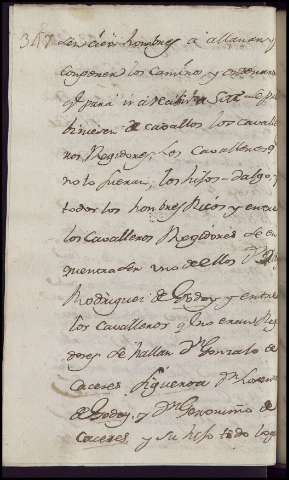 347 den cien hombres a allanar y
componer los caminos y
q.e para ir a recibir a
de cavallos los cavalle
ros Regidores, los Cavalleros q
no lo fueran, los hijos-dalgo, y
todos los hombres Ricos y entre
los Cavalleros Regidores se en
uno de ellos D.n
Rodriguez de Godoy y entre
los cavalleros q no eran Re
dores se hallan D.n Gonzalo de
Caceres Figueroa D.n Lorenzo
de Godoy, y D.n Geronimo de
Caceres y su hijo todo